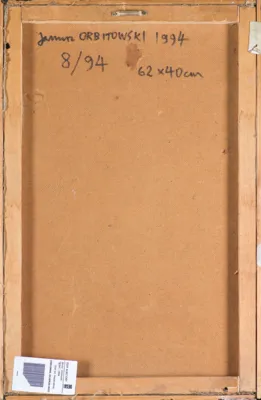 Janusz ORBITOWSKI 1994
8/94
62 x 40 cm